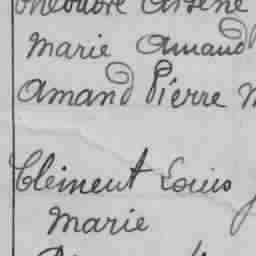 Arsène
Marie Amand
Amand Pierre
Clément Louis
Marie